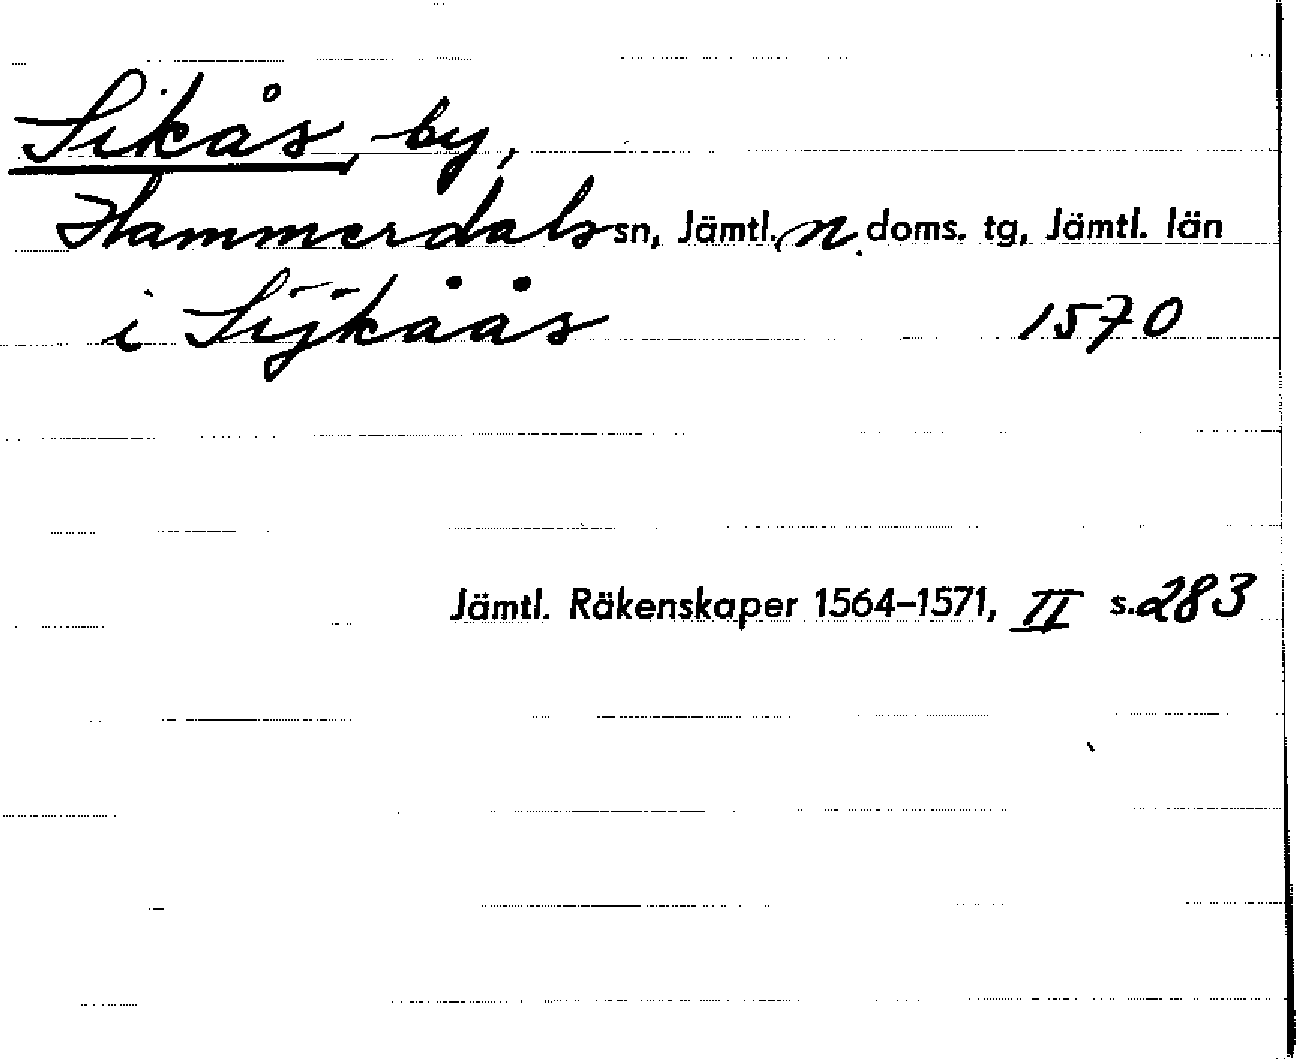 Sikås, by,
Hammerdals sn, Jämtl. n. doms. tg, Jämtl. län
i Sijkåås 1570
Jämtl. Räkenskaper 1564–1571, II s. 283